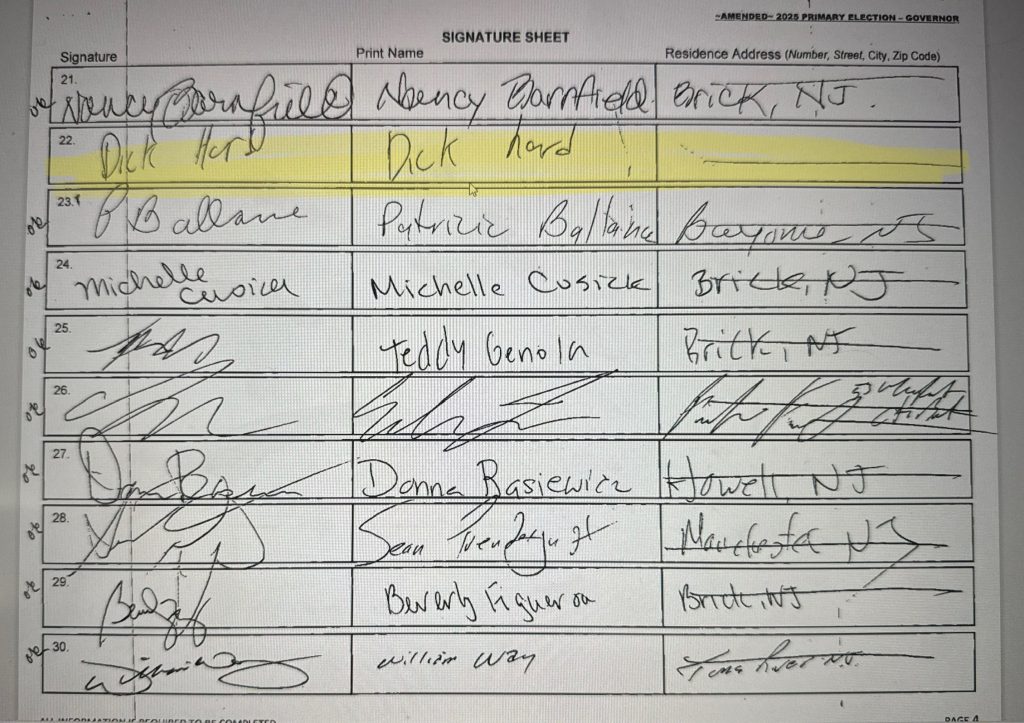 ~AMENDED~ 2025 PRIMARY ELECTION – GOVERNOR
SIGNATURE SHEET
Signature Print Name Residence Address (Number, Street, City, Zip Code)
21. Nancy Barnfield Nancy Barnfield Brick, NJ.
22. Dick Hard Dick hard
23. P Ballane Patrizia Bayonne NJ
24. Michelle Cusick Michelle Cusick Brick, NJ
25. Teddy Genola Brick, NJ
26.
27. Donna Basiewicz Howell, NJ
28. Sean Manchester NJ
29. Beverly Figueroa Brick, NJ
30. William Way Toms River NJ.
ALL INFORMATION IS REQUIRED TO BE COMPLETED
PAGE 4